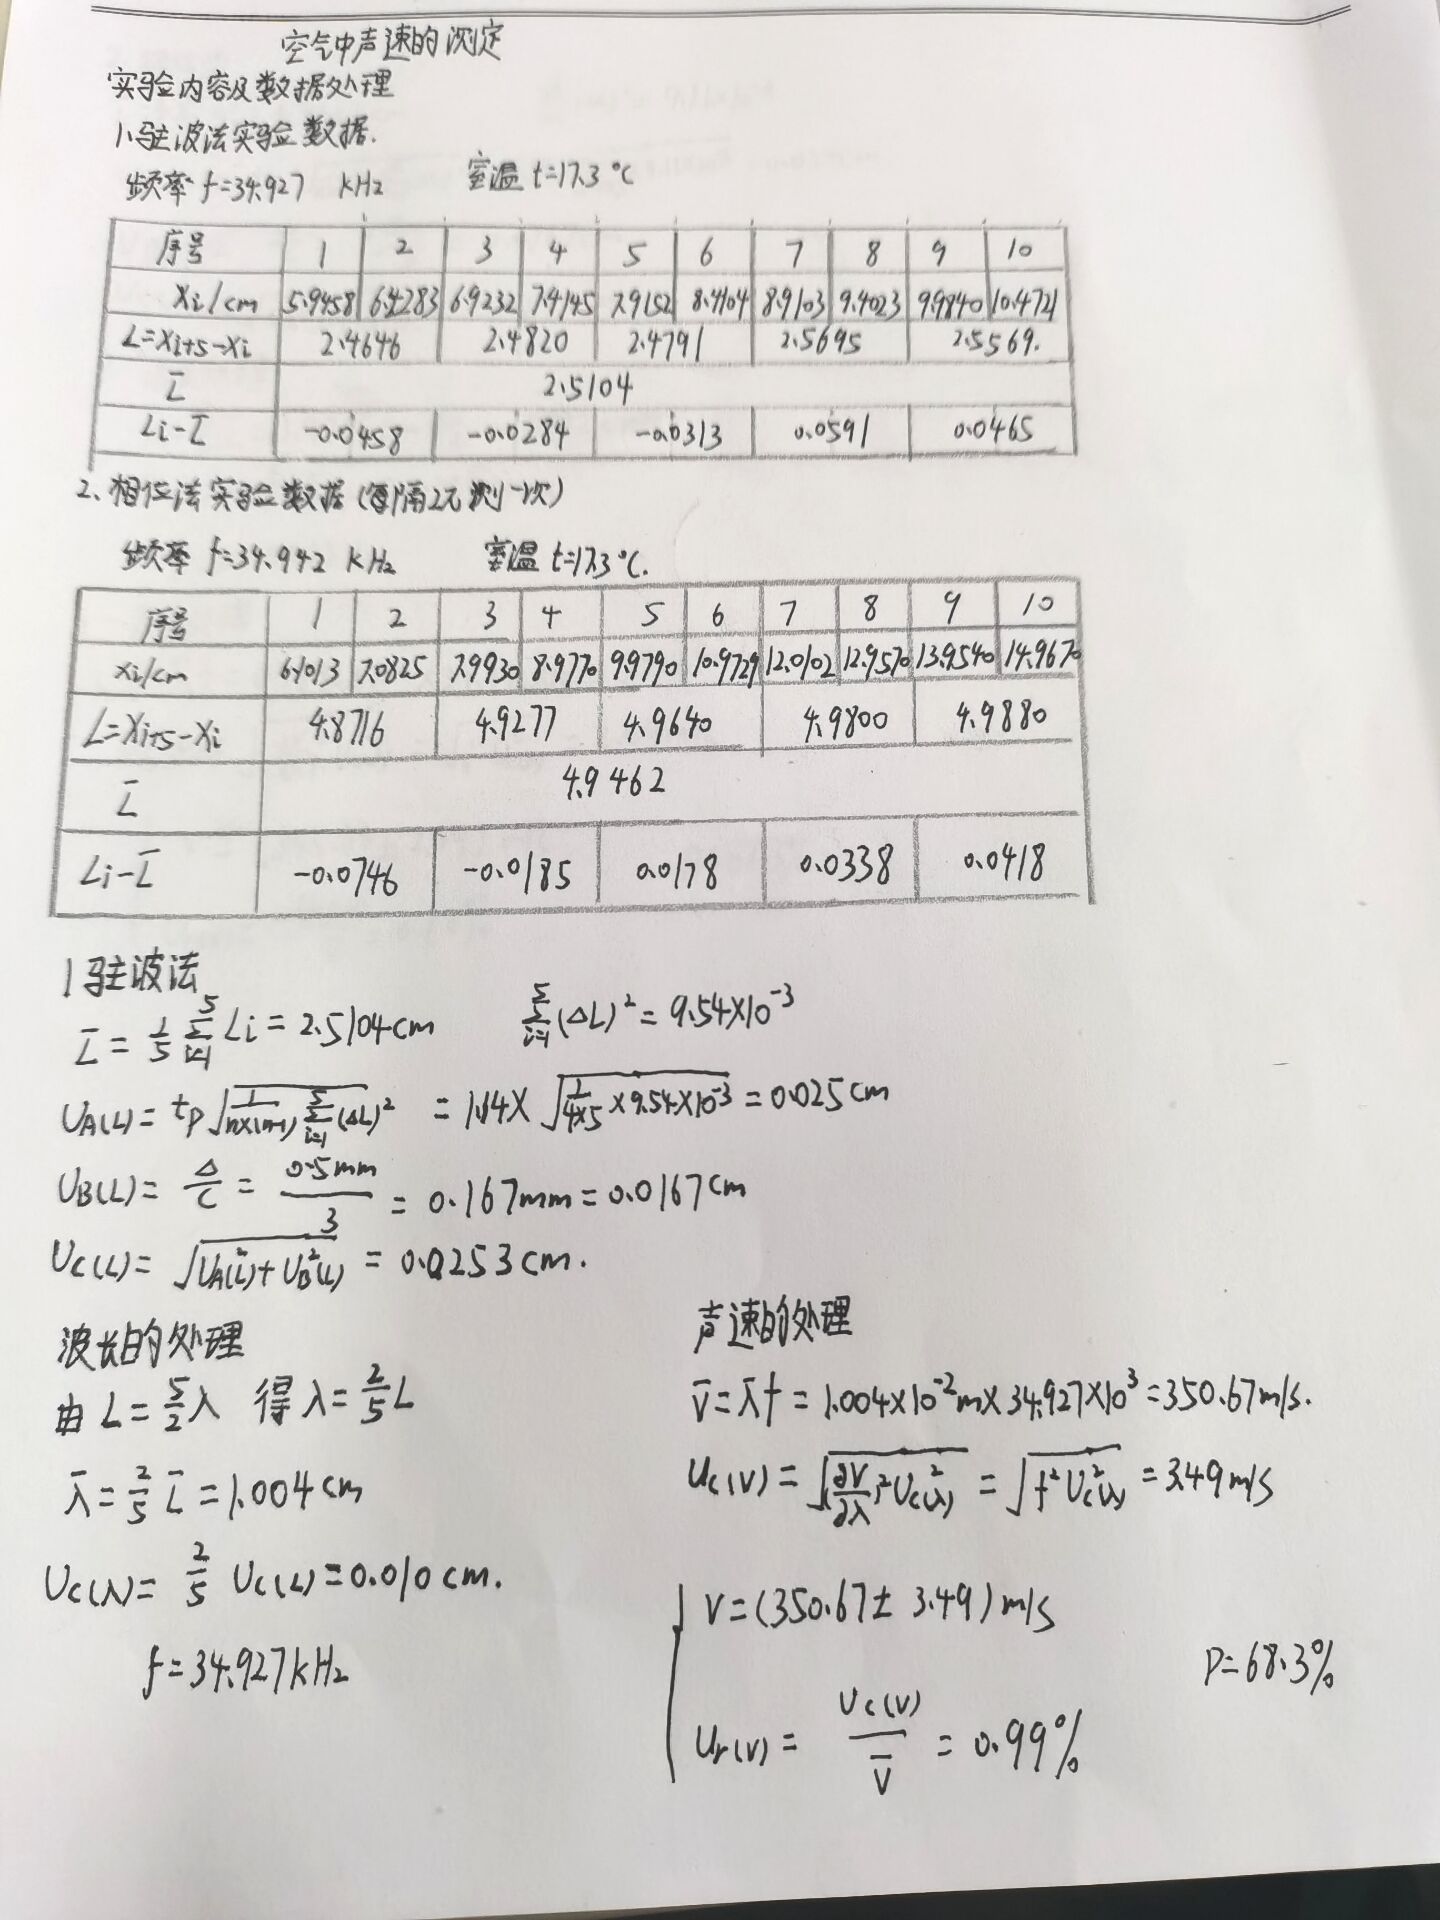 空气中声速的测定
实验内容及数据处理
1、驻波法实验数据.
频率 f=34.927 kHz 室温 t=17.3 ℃
序号 1 2 3 4 5 6 7 8 9 10
Xi/cm 5.9458 6.4283 6.9232 7.4145 7.9152 8.4104 8.9103 9.4023 9.9840 10.4721
L=Xi+5-Xi 2.4646 2.4820 2.4791 2.5695 2.5569.
L̄ 2.5104
Li-L̄ -0.0458 -0.0284 -0.0313 0.0591 0.0465
2、相位法实验数据(每隔2π测一次)
频率 f=34.942 kHz 室温 t=17.3℃.
序号 1 2 3 4 5 6 7 8 9 10
xi/cm 6.1013 7.0825 7.9930 8.9770 9.9790 10.9729 12.0102 12.9570 13.9540 14.9670
L=Xi+5-Xi 4.8716 4.9277 4.9640 4.9800 4.9880
L̄ 4.9462
Li-L̄ -0.0746 -0.0185 0.0178 0.0338 0.0418
1驻波法
L̄=1/5 Σ(i=1→5) Li=2.5104cm Σ(i=1→5)(ΔL)²=9.54×10⁻³
UA(L)=tp√(1/(n×(n-1)) Σ(i=1→5)(ΔL)²) =1.14×√(1/(4×5)×9.54×10⁻³)=0.025cm
UB(L)=Δ/C=0.5mm/3=0.167mm=0.0167cm
UC(L)=√(UA²(L)+UB²(L))=0.0253cm.
波长的处理
由L=5/2λ 得λ=2/5L
λ̄=2/5 L̄=1.004cm
UC(λ)=2/5 UC(L)=0.010cm.
f=34.927kHz
声速的处理
v̄=λ̄f=1.004×10⁻²m×34.927×10³=350.67m/s.
Uc(V)=√((∂V/∂λ)²Uc²(λ))=√(f²Uc²(λ))=3.49m/s
V=(350.67±3.49)m/s
P=68.3%
Ur(V)=Uc(V)/V̄=0.99%